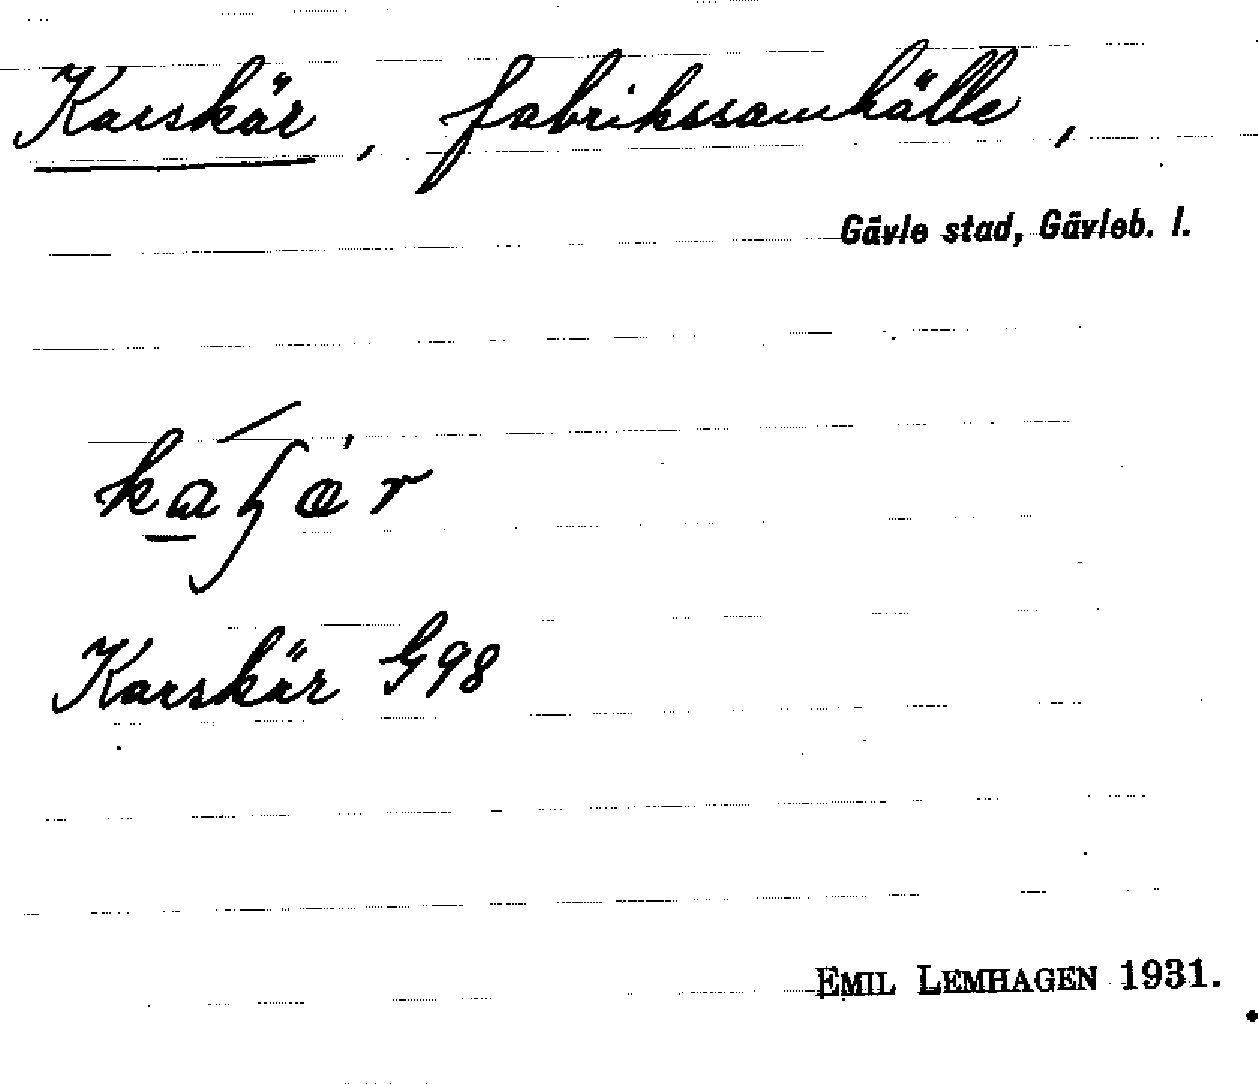 Karskär, fabrikssamhälle,
Gävle stad, Gävleb. l.
Karskär G98
EMIL LEMHAGEN 1931.